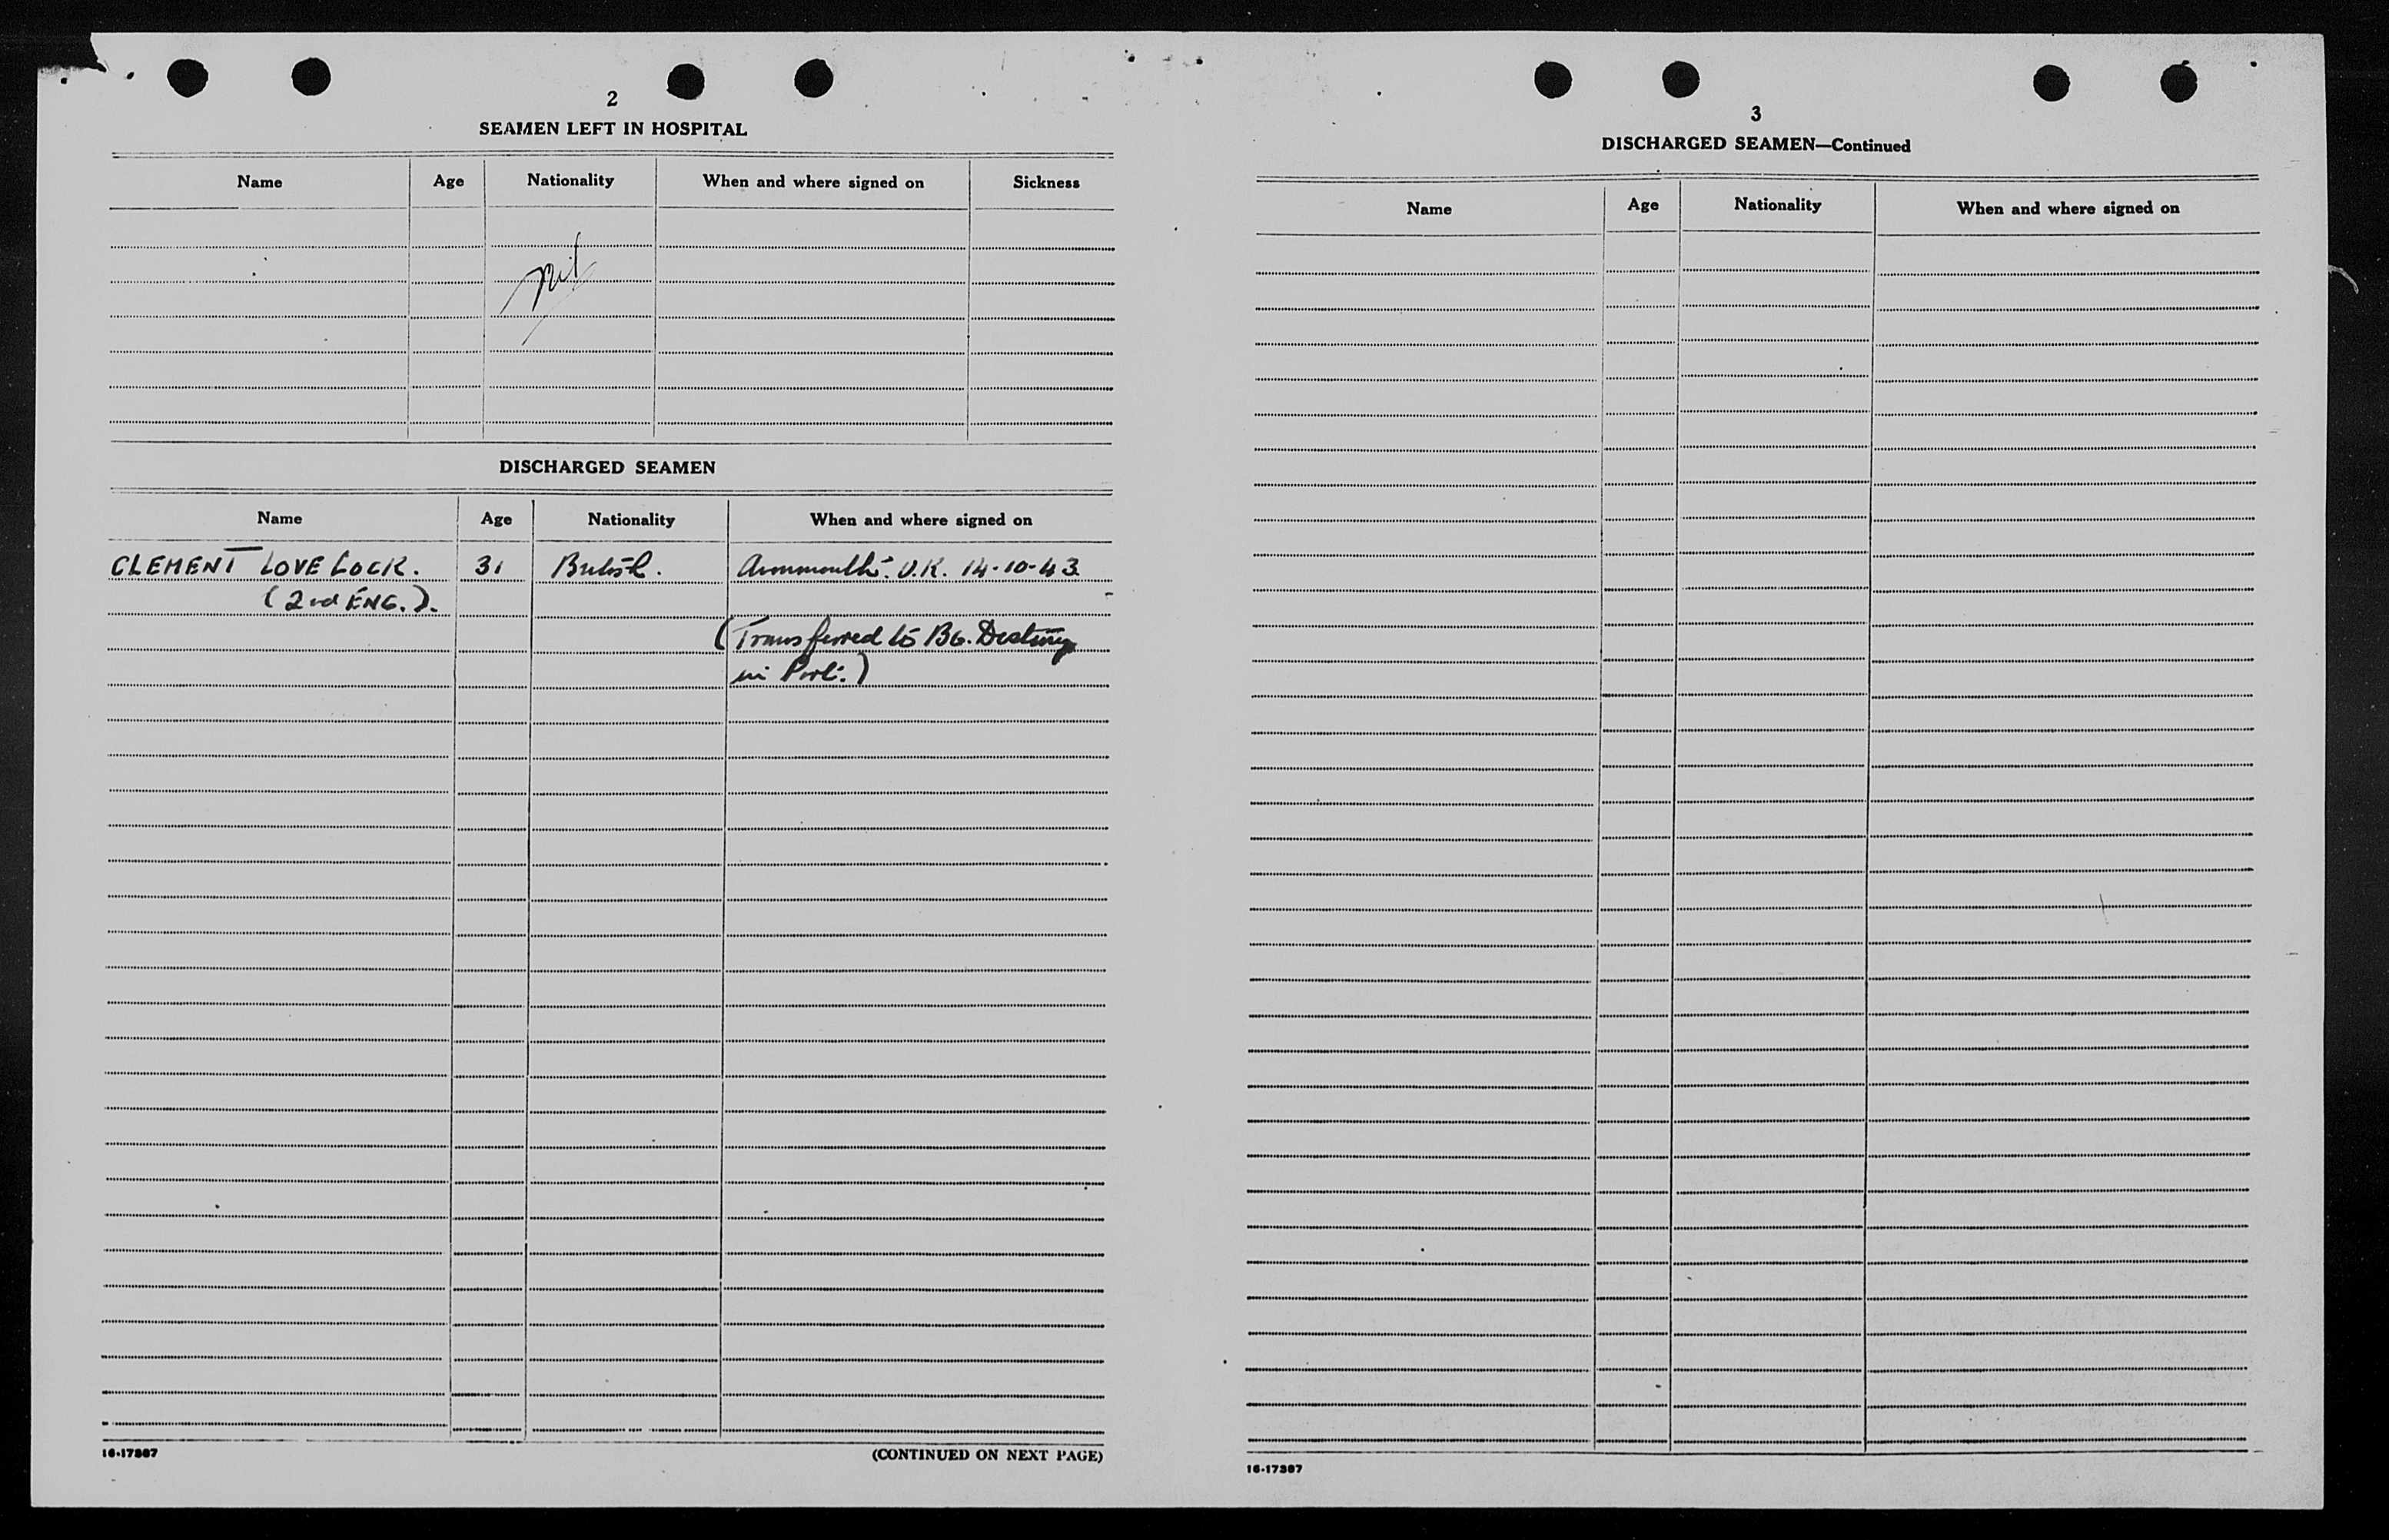 2
SEAMEN LEFT IN HOSPITAL
Name Age Nationality When and where signed on Sickness
nil
DISCHARGED SEAMEN
Name Age Nationality When and where signed on
CLEMENT LOVELOCK. 31 British. Avonmouth. U.K. 14-10-43
(2nd ENG.).
(Transferred to Bg. Destiny
in Port.)
16-17387
(CONTINUED ON NEXT PAGE)
3
DISCHARGED SEAMEN—Continued
Name Age Nationality When and where signed on
16-17387